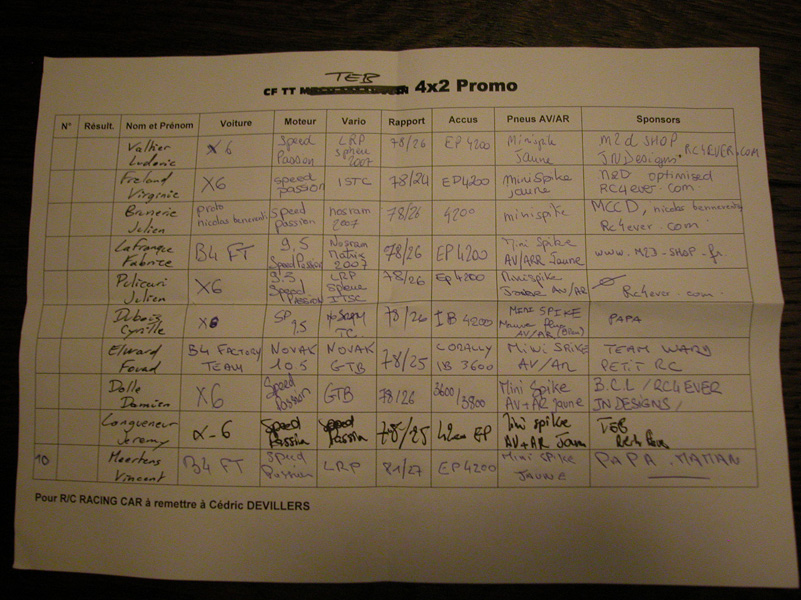 TEB
CF TT 4x2 Promo
N° Résult. Nom et Prénom Voiture Moteur Vario Rapport Accus Pneus AV/AR Sponsors
Valtier Ludovic X6 Speed Passion LRP 2007 78/26 EP 4200 Minispike Jaune M2d SHOP RC4EVER.COM JNDesigns
Virginie X6 speed passion ISTC 78/24 EP4200 miniSpike jaune optimised RC4ever.com
Brunerie Julien proto nicolas speed Passion nosram 2007 78/26 4200 minispike MCCD, nicolas Rc4ever.com
Lafranque Fabrice B4 FT 9,5 Speed Passion Nosram Matrix 2007 78/26 EP 4200 Mini Spike AV/ARR Jaune www.M2D-SHOP.fr
Policari Julien X6 9,5 Speed Passion LRP ITSC 78/26 EP 4200 Minispike Jaune AV/AR Rc4ever.com
Dubois Cyrille X6 SP 9.5 TC 78/26 IB 4200 MINI SPIKE AV/AR PAPA
Elward Fouad B4 FACTORY TEAM NOVAK 10 5 NOVAK GTB 78/25 CORALLY IB 3600 Mini SPIKE AV/AR TEAM WARD PETIT RC
Dolle Damien X6 Speed Passion GTB 78/26 3600/3800 Mini Spike AV+AR Jaune B.C.L / RC4EVER JNDESIGNS/
Longueneur Jeremy X-6 Speed Passion Speed Passion 78/25 4200 EP Mini spike AV+AR Jaun TEB
10 Meertens Vincent B4 FT Speed Passion LRP 81/27 EP4200 Mini Spike JAUNE PAPA.MAMAN
Pour R/C RACING CAR à remettre à Cédric DEVILLERS